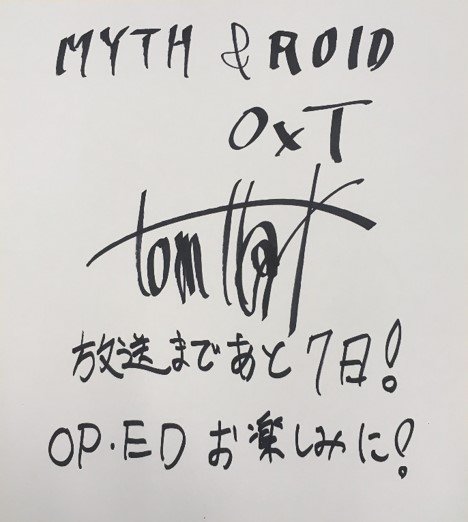 MYTH & ROID
OxT
Tom H@ck
放送まであと7日!
OP・ED お楽しみに!